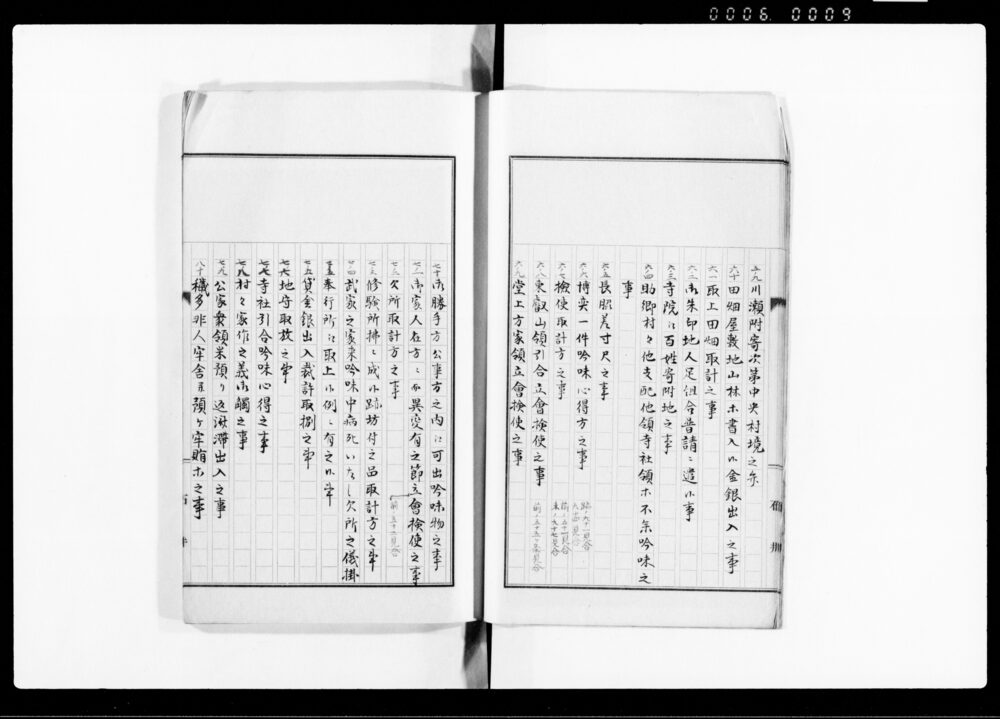 0006 0009
五九 川瀬附寄次第中央村境之事
六十 田畑屋敷地山林ホ書入ニ而金銀出入之事
六一 取上田畑取計之事
六二 御朱印地人足組合普請ニ遣候事
六三 寺院江百姓寄附地之事
六四 助郷村々他支配他領寺社領ホ不念吟味之
事
六五 長脇差寸尺之事
六六 博奕一件吟味心得方之事
六七 検使取計方之事
六八 東叡山領引合立會検使之事
六九 堂上方家領立會検使之事
七十 御勝手方公事方之内江可出吟味物之事
七一 御家人在方ニ而異変有之節立會検使之事
七二 欠所取計方之事
七三 修験所拂ニ成候跡坊付之品取計方之事
七四 武家之家来吟味中病死いたし欠所之儀掛
奉行所江取上候例有之候事
七五 貸金銀出入裁許取捌之事
七六 地守取放之事
七七 寺社引合吟味心得之事
七八 村々家作之義御觸之事
七九 公家衆領米預り返済滞出入之事
八十 穢多非人牢舎并預ケ牢賄ホ之事